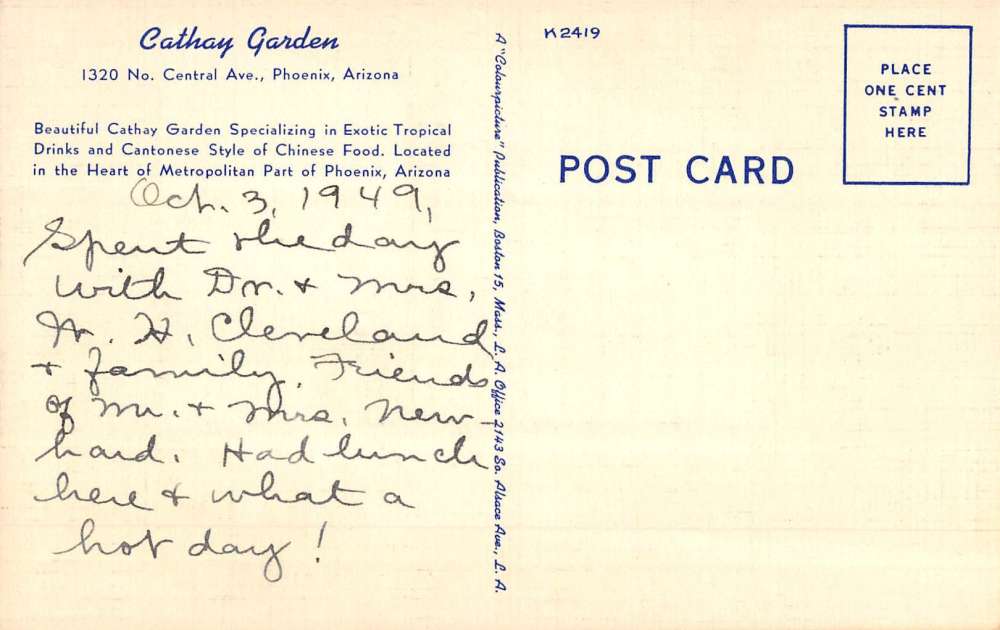 Cathay Garden
1320 No. Central Ave., Phoenix, Arizona
Beautiful Cathay Garden Specializing in Exotic Tropical
Drinks and Cantonese Style of Chinese Food. Located
in the Heart of Metropolitan Part of Phoenix, Arizona
Oct. 3, 1949,
Spent the day
with Dr. + Mrs.
W. H. Cleveland
+ family. Friends
of Mr. + Mrs. New-
hard. Had lunch
here + what a
hot day!
A "Colourpicture" Publication, Boston 15, Mass., L. A. Office 2143 So. Alsace Ave., L. A.
K2419
POST CARD
PLACE
ONE CENT
STAMP
HERE